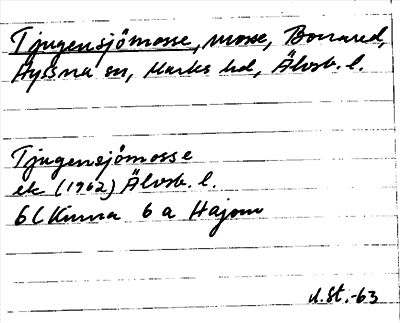 Tjugensjömosse, mosse, Bonared,
Hyssna sn, Marks hd, Älvsb. l.
Tjugensjömosse
ek (1962) Älvsb. l.
6C Kinna 6 a Hajom
d. St. -63